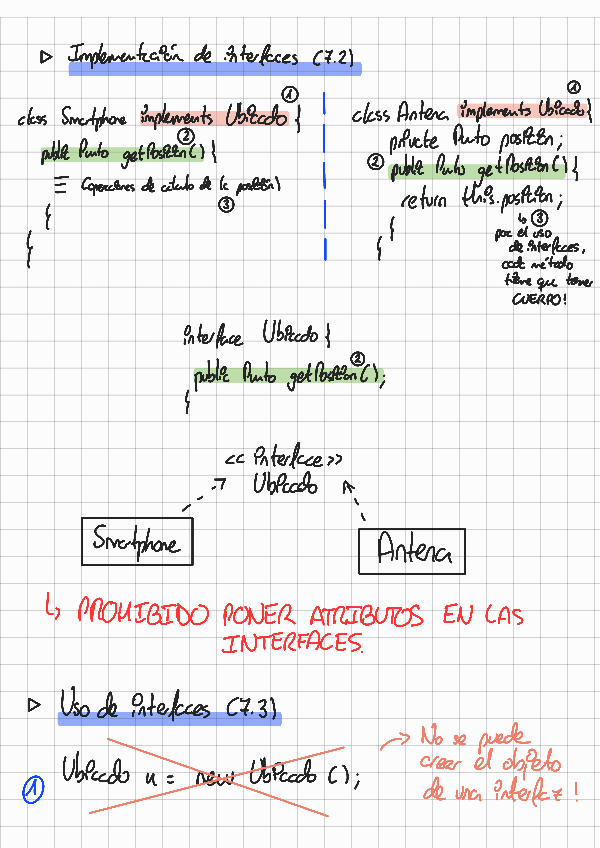 ▷ Implementación de interfaces (7.2)
class Smartphone implements Ubicado {
①
public Punto getPosition() {
②
(operaciones de cálculo de la position)
③
}
}
class Antena implements Ubicado {
①
private Punto position;
② public Punto getPosition() {
return this.position;
}
}
↳ ③
por el uso
de interfaces,
cada método
tiene que tener
CUERPO!
interface Ubicado {
②
public Punto getPosition();
}
<< interface >>
Ubicado
Smartphone
Antena
↳ PROHIBIDO PONER ATRIBUTOS EN LAS
INTERFACES.
▷ Uso de interfaces (7.3)
① Ubicado u = new Ubicado ();
→ No se puede
crear el objeto
de una interfaz!